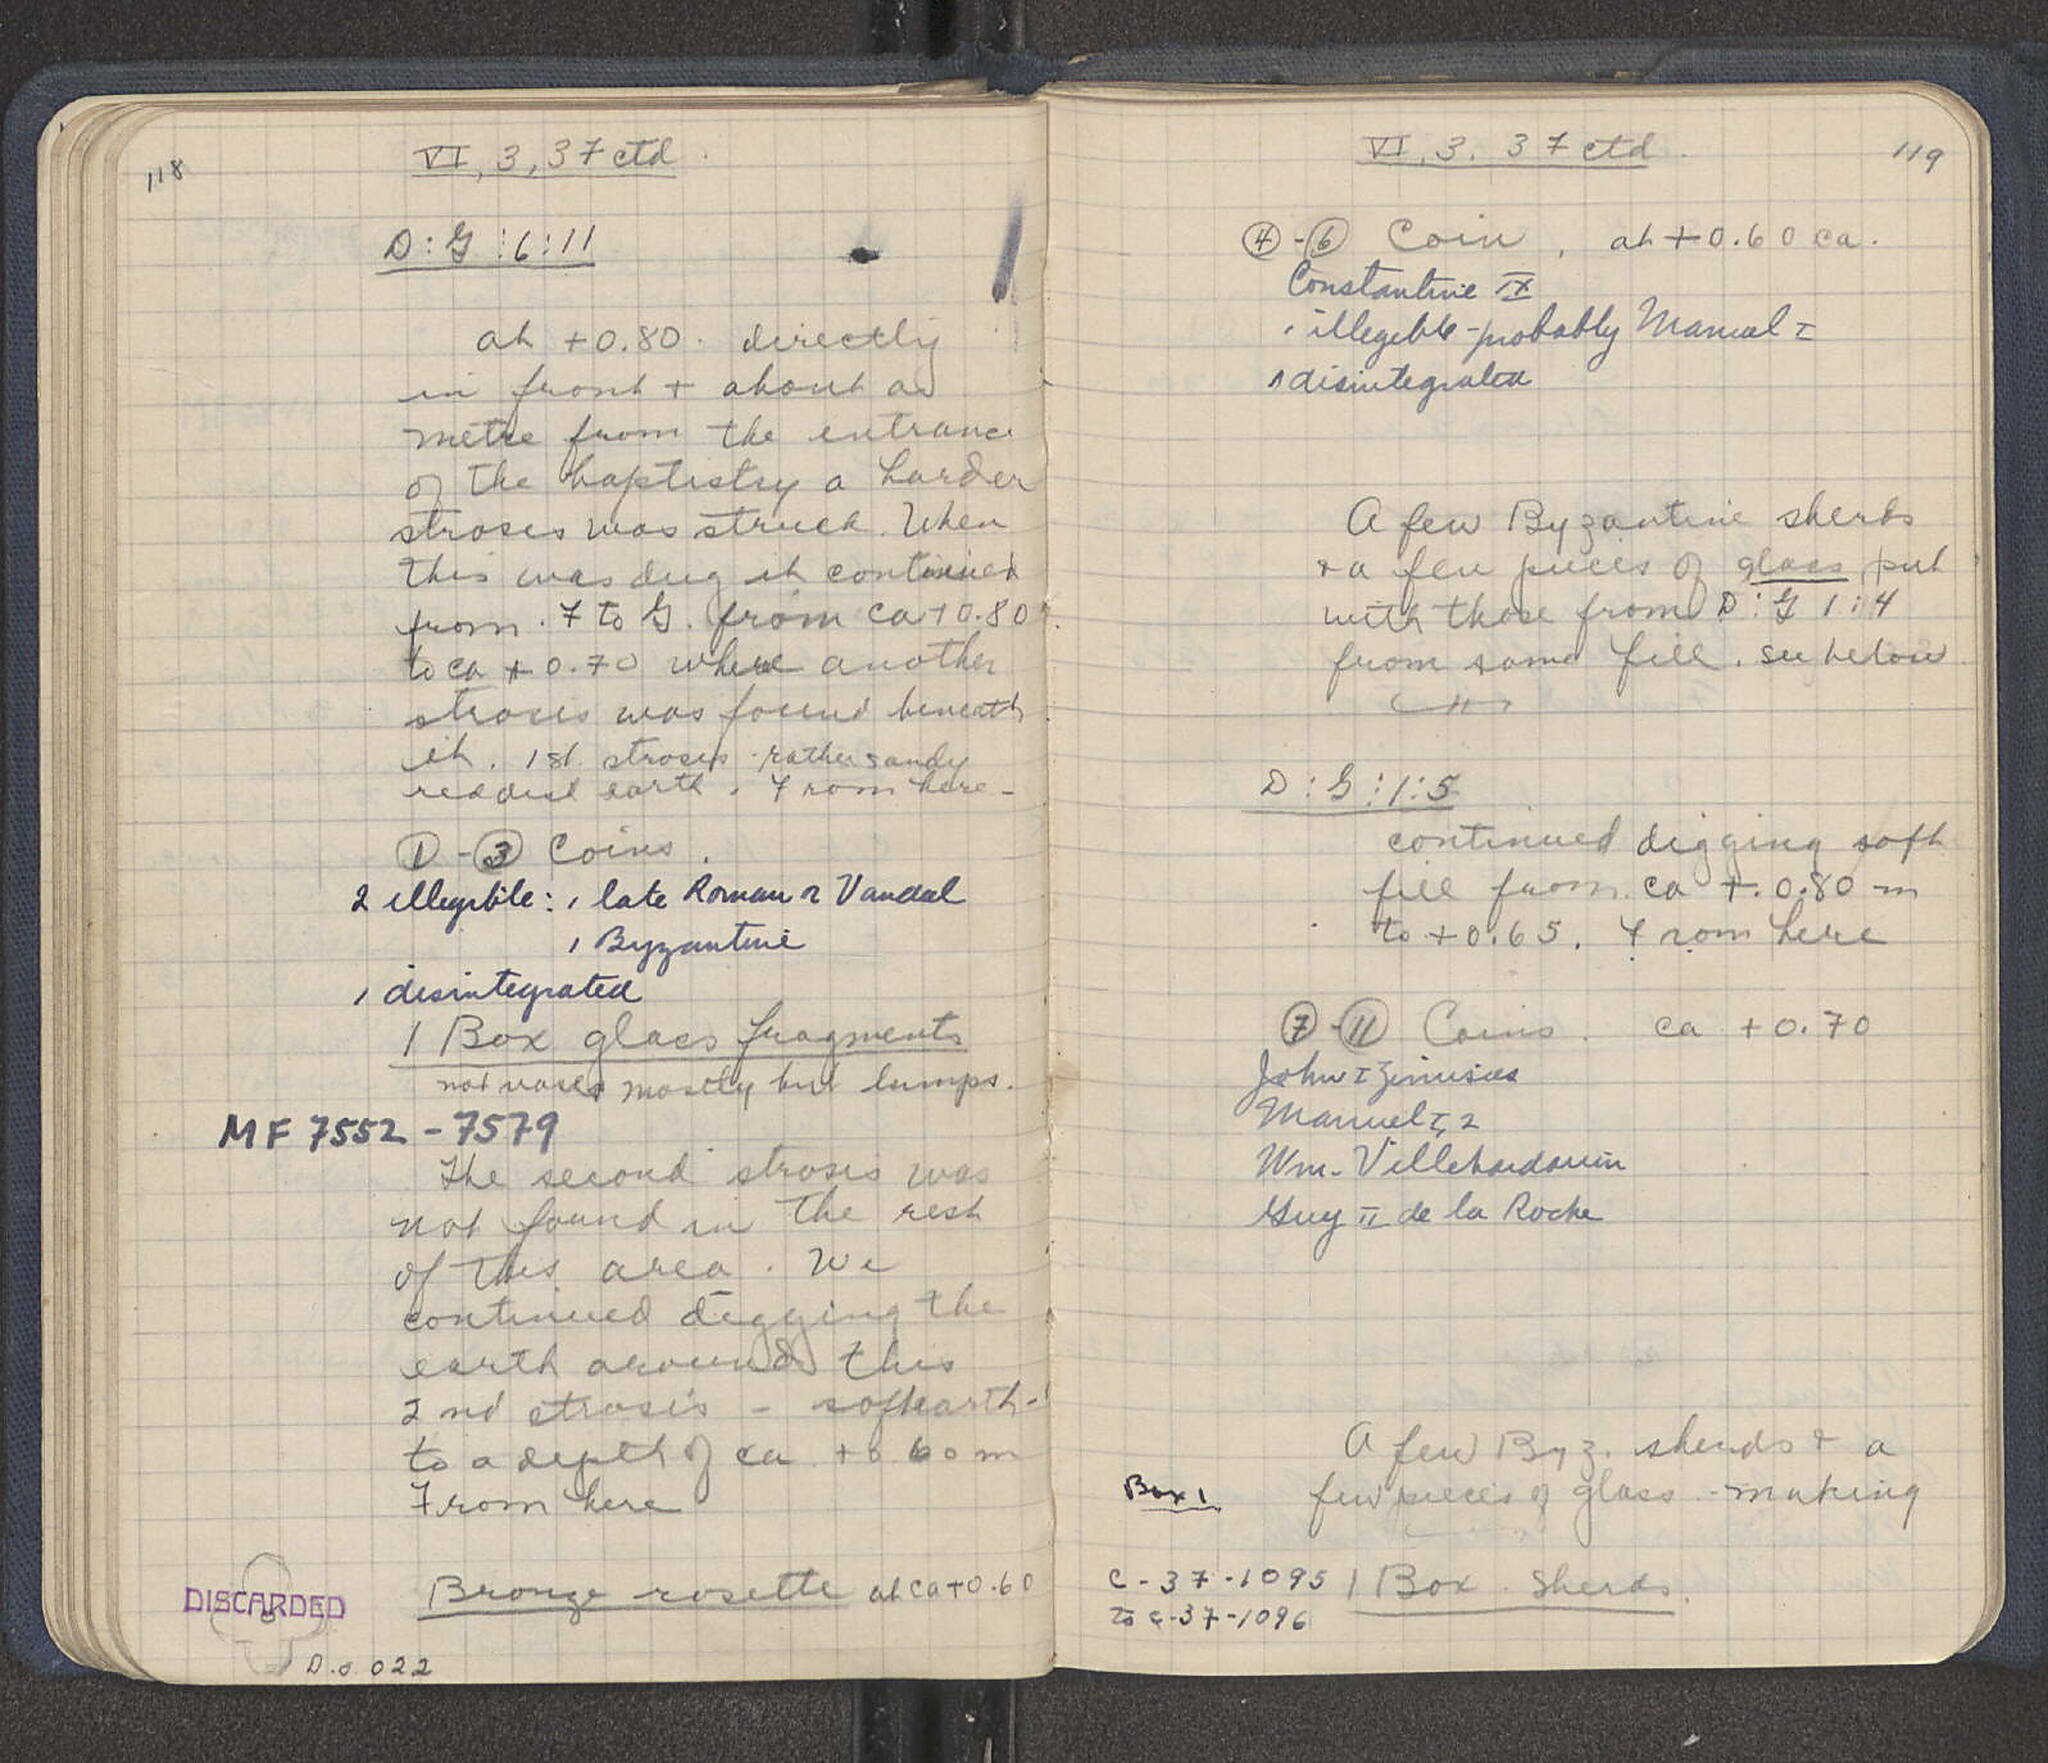 118
VI, 3, 37 ctd.
D:G:6:11
at +0.80. directly
in front + about a
metre from the entrance
of the baptistry a harder
stroses was struck. When
this was dug it continued
from F to G. from ca +0.80
to ca +0.70 where another
strosis was found beneath
it. 1st. strosis - rather sandy
reddish earth. From here -
① - ③ Coins.
2 illegible: 1 late Roman or Vandal
1 Byzantine
1 disintegrated
1 Box glass fragments
not vases mostly but lumps.
MF 7552 - 7579
The second strosis was
not found in the rest
of this area. We
continued digging the
earth around this
2nd strosis - soft earth -
to a depth of ca +0.60 m
From here
Bronze rosette at ca +0.60
DISCARDED
D.o. 022
VI, 3. 37 ctd.
119
④ - ⑥ Coin, at +0.60 ca.
Constantine IX
1 illegible - probably Manuel I
1 disintegrated
A few Byzantine sherds
+ a few pieces of glass put
with those from D:G 1:4
from same fill. see below
D:G:1:5
continued digging soft
fill from ca +.0.80 m
to +0.65. From here
⑦ - ⑪ Coins. ca +0.70
John I Zimisces
Manuel I, 2
Wm. Villehardouin
Guy II de la Roche
A few Byz. sherds + a
Box 1
few pieces of glass - making
C-37-1095
1 Box sherds.
to C-37-1096